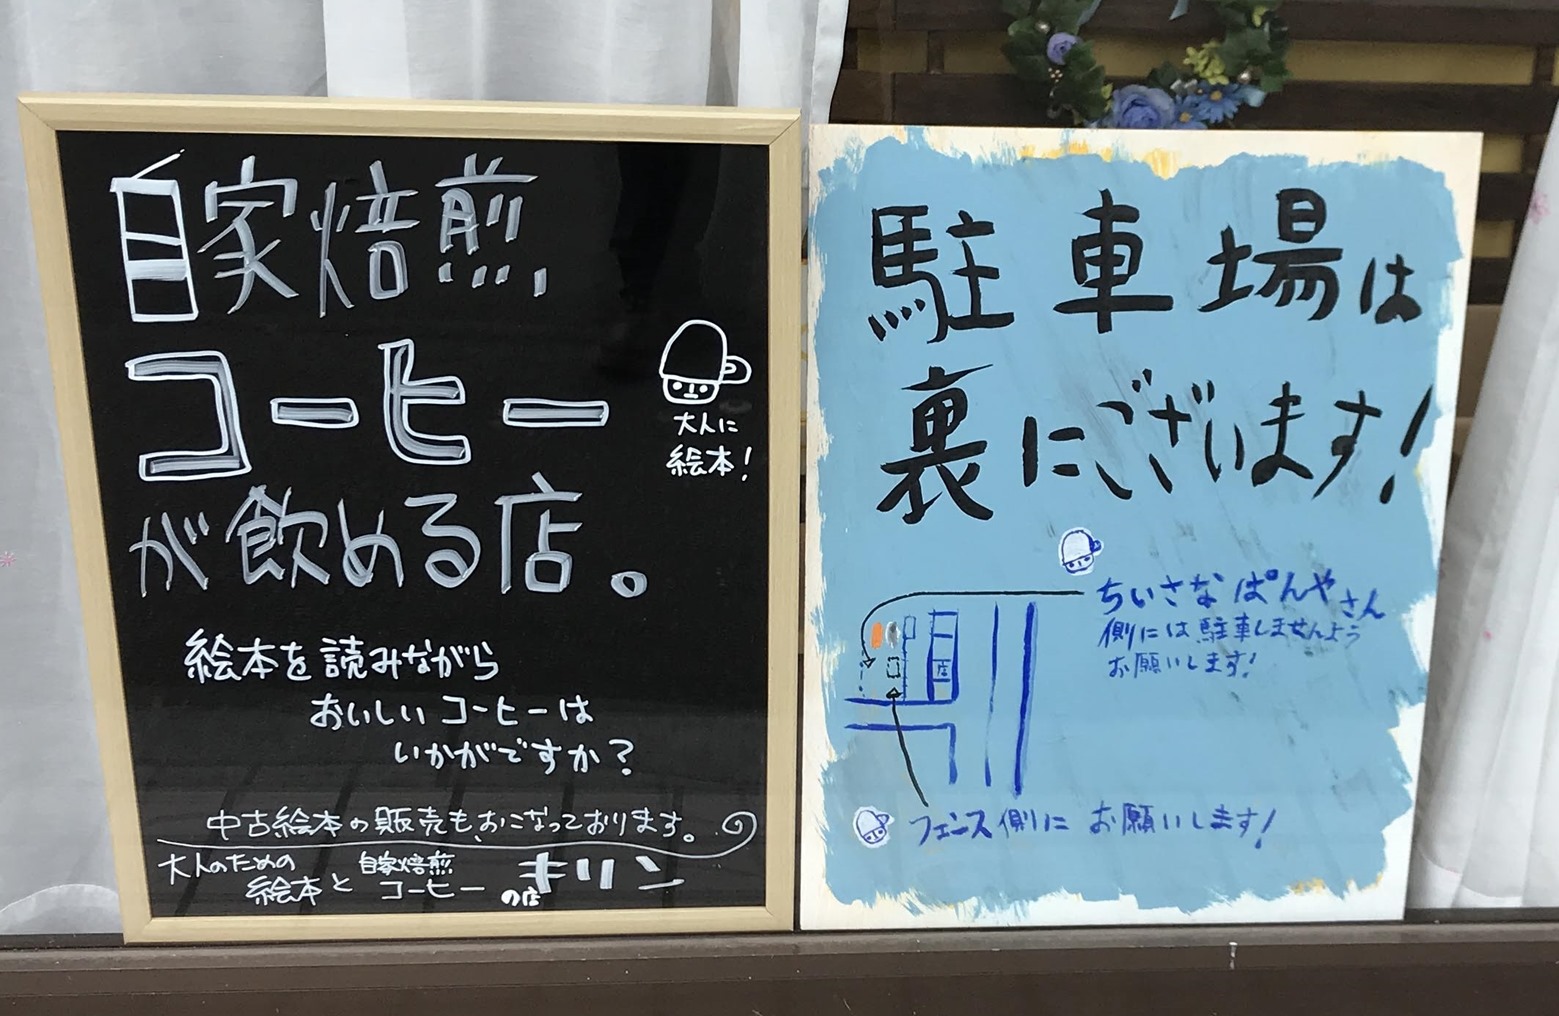 自家焙煎
コーヒー
が飲める店。
大人に
絵本!
絵本を読みながら
おいしいコーヒーは
いかがですか?
中古絵本の販売もおこなっております。
大人のための
絵本と
自家焙煎
コーヒー
の店
キリン
駐車場は
裏にございます!
ちいさなぱんやさん
側には駐車しませんよう
お願いします!
店
フェンス側に お願いします!